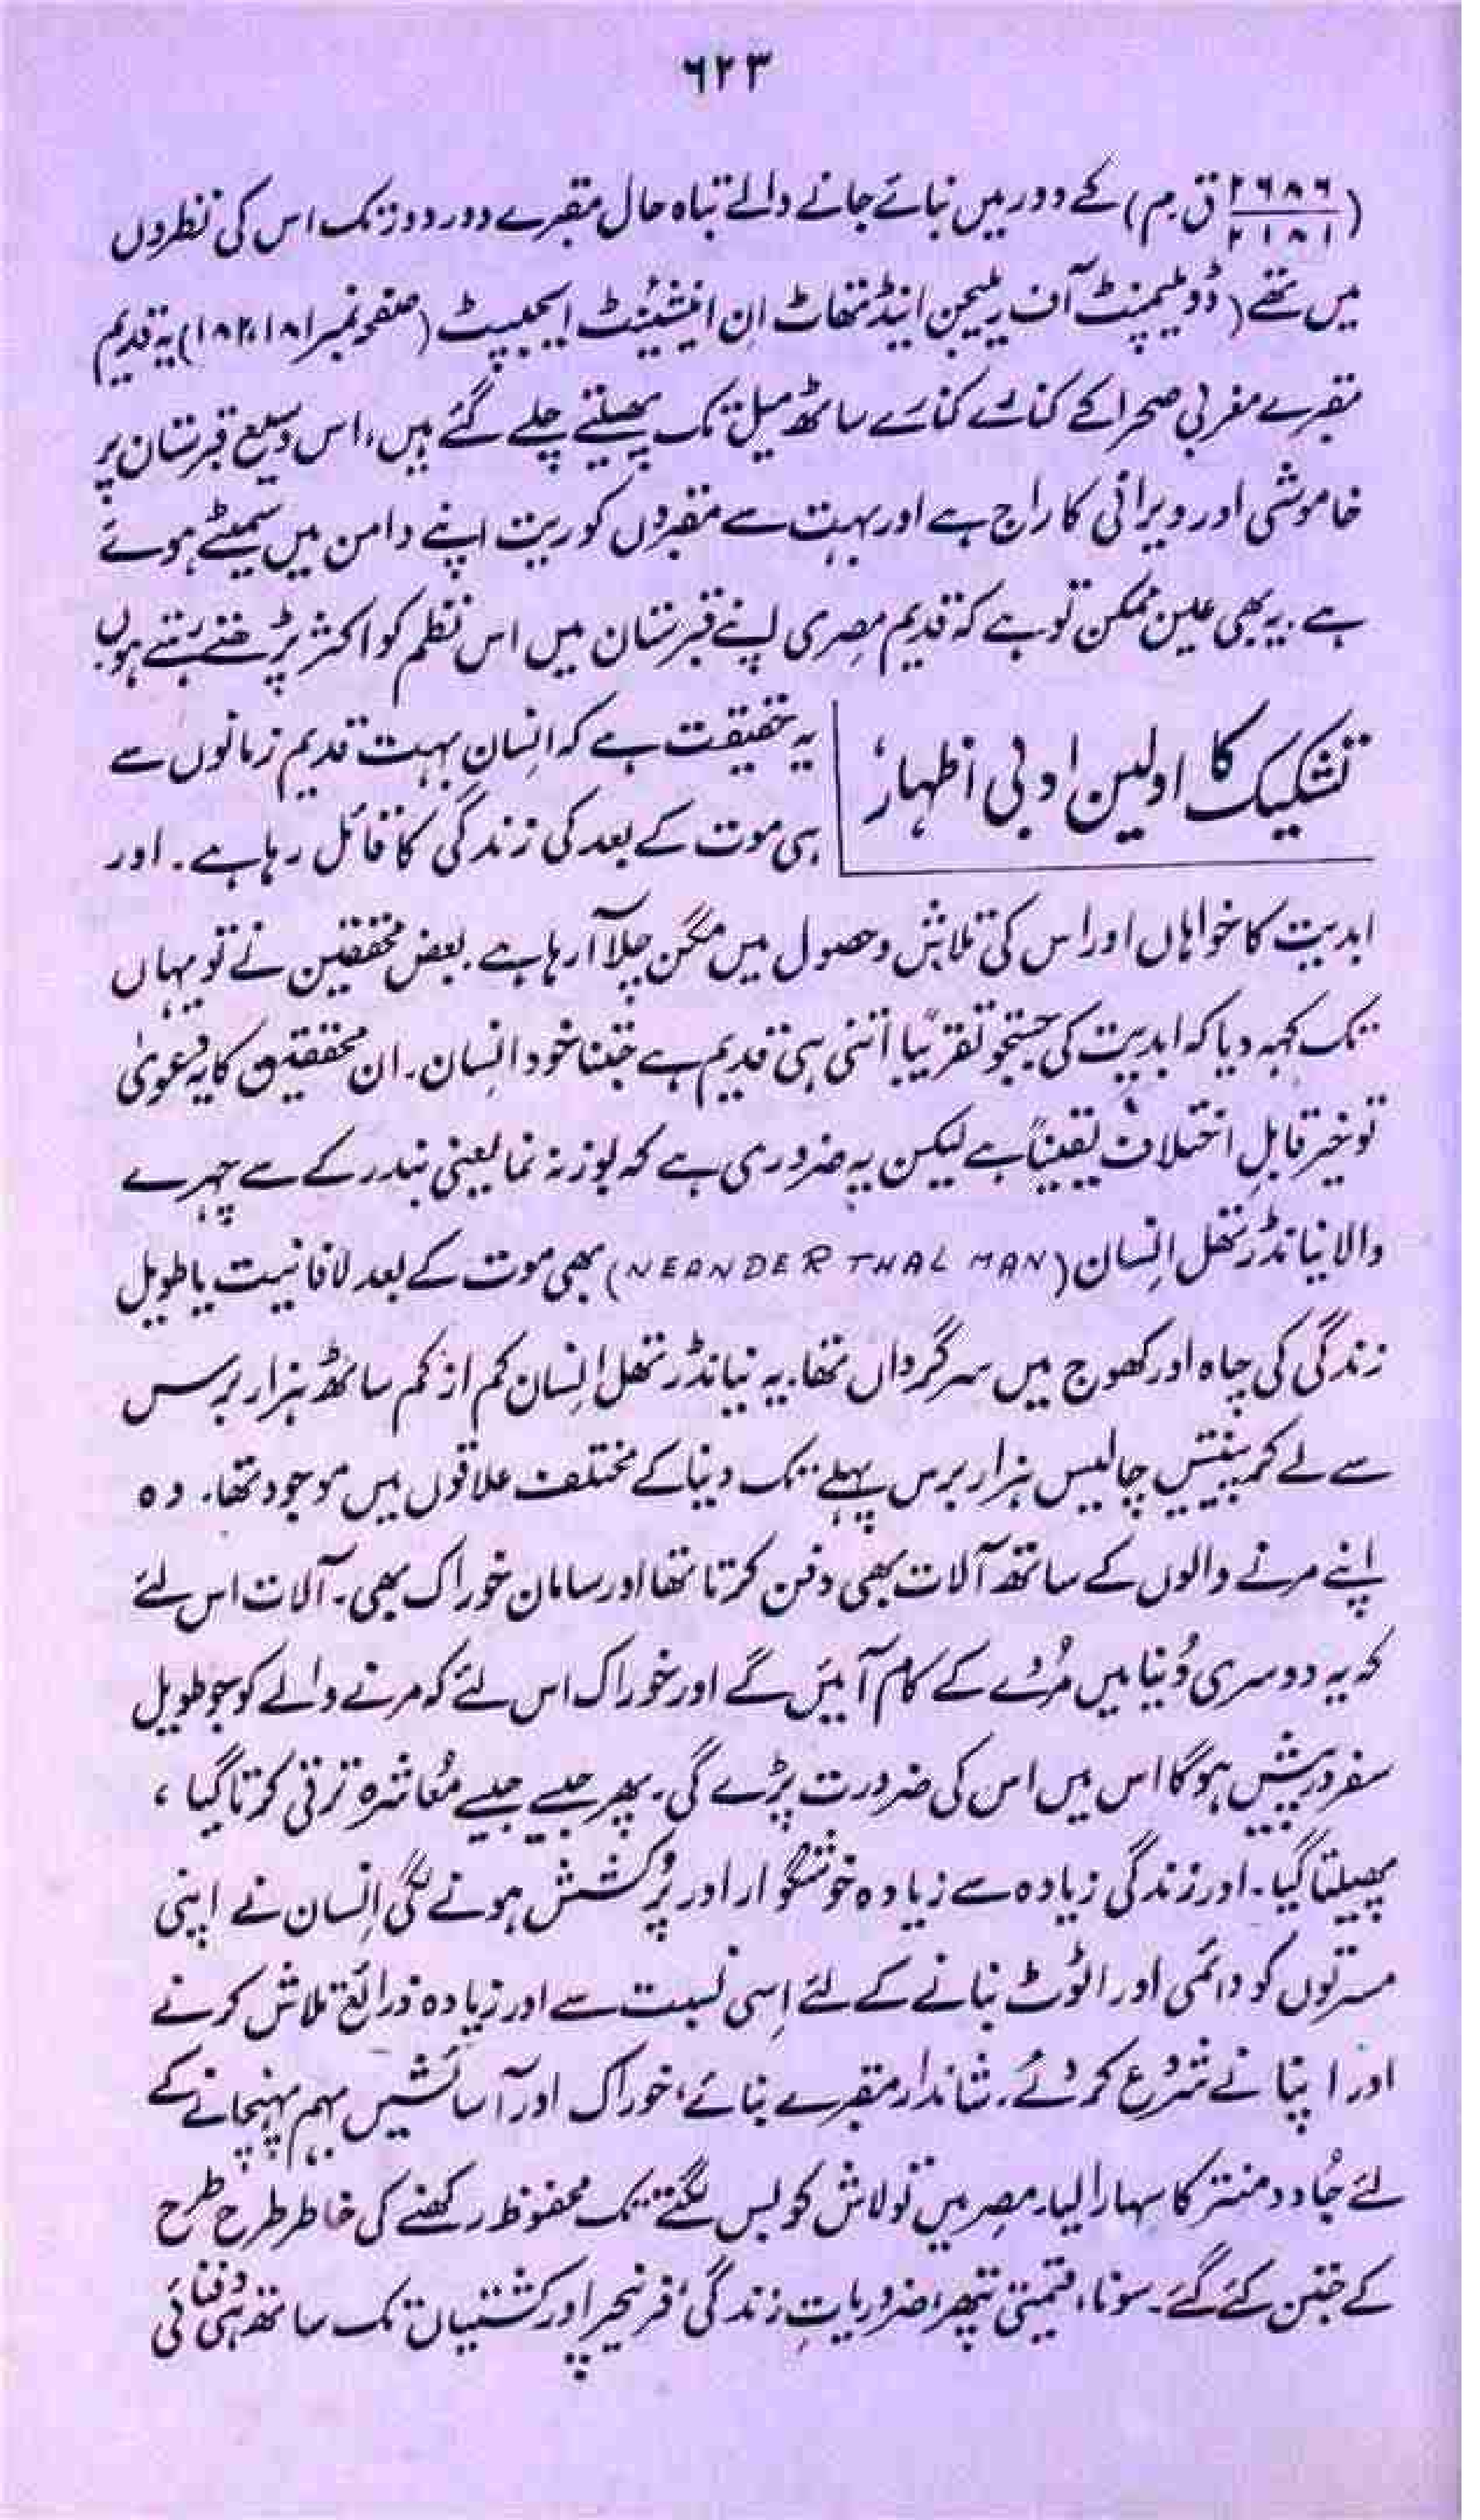 ۶۲۳
(۲۶۸۶/۲۱۸۱ ق.م) کے دور میں بنائے جانے والے تباہ حال مقبرے دور دور تک اس کی نظروں
میں تھے (ڈویلپمنٹ آف ریلیجن اینڈ تھاٹ اِن اینشیئنٹ ایجیپٹ (صفحہ نمبر ۱۸۲،۱۸۱) یہ قدیم
مقبرے مغربی صحرا کے کنارے کنارے ساٹھ میل تک پھیلتے چلے گئے ہیں، اس وسیع قبرستان پر
خاموشی اور ویرانی کا راج ہے اور بہت سے مقبروں کو ریت اپنے دامن میں سمیٹے ہوئے
ہے. یہ بھی عین ممکن تو ہے کہ قدیم مصری اپنے قبرستان میں اس نظم کو اکثر پڑھتے رہتے ہوں
تشکیک کا اولین ادبی اظہار؛
یہ حقیقت ہے کہ اِنسان بہت قدیم زمانوں سے
ہی موت کے بعد کی زندگی کا قائل رہا ہے. اور
ابدیت کا خواہاں اور اس کی تلاش و حصول میں مگن چلا آ رہا ہے. بعض محققین نے تو یہاں
تک کہہ دیا کہ ابدیت کی جستجو تقریباً اتنی ہی قدیم ہے جتنا خود انسان. ان محققین کا یہ دعویٰ
تو خیر قابلِ اختلاف یقیناً ہے لیکن یہ ضروری ہے کہ بوزنہ نما یعنی بندر کے سے چہرے
والا نیانڈرتھل اِنسان (NEANDERTHAL MAN) بھی موت کے بعد لافانیت یا طویل
زندگی کی چاہ اور کھوج میں سرگرداں تھا. یہ نیانڈرتھل اِنسان کم از کم ساٹھ ہزار برس
سے لے کر پینتیس چالیس ہزار برس پہلے تک دنیا کے مختلف علاقوں میں موجود تھا. وہ
اپنے مرنے والوں کے ساتھ آلات بھی دفن کرتا تھا اور سامان خوراک بھی. آلات اس لئے
کہ یہ دوسری دُنیا میں مُردے کے کام آئیں گے اور خوراک اس لئے کہ مرنے والے کو جو طویل
سفر درپیش ہو گا اس میں اس کی ضرورت پڑے گی. پھر جیسے جیسے معاشرہ ترقی کرتا گیا،
پھیلتا گیا. اور زندگی زیادہ سے زیادہ خوشگوار اور پُر کشش ہونے لگی اِنسان نے اپنی
مسرتوں کو دائمی اور اٹوٹ بنانے کے لئے اِسی نسبت سے اور زیادہ ذرائع تلاش کرنے
اور اپنانے شروع کر دئے. شاندار مقبرے بنائے، خوراک اور آسائشیں بہم پہنچانے کے
لئے جادو منتر کا سہارا لیا. مصر میں تو لاش کو بس لگتے تک محفوظ رکھنے کی خاطر طرح طرح
کے جتن کئے گئے. سونا، قیمتی پتھر، ضروریاتِ زندگی، فرنیچر اور کشتیاں تک ساتھ ہی دفنائی